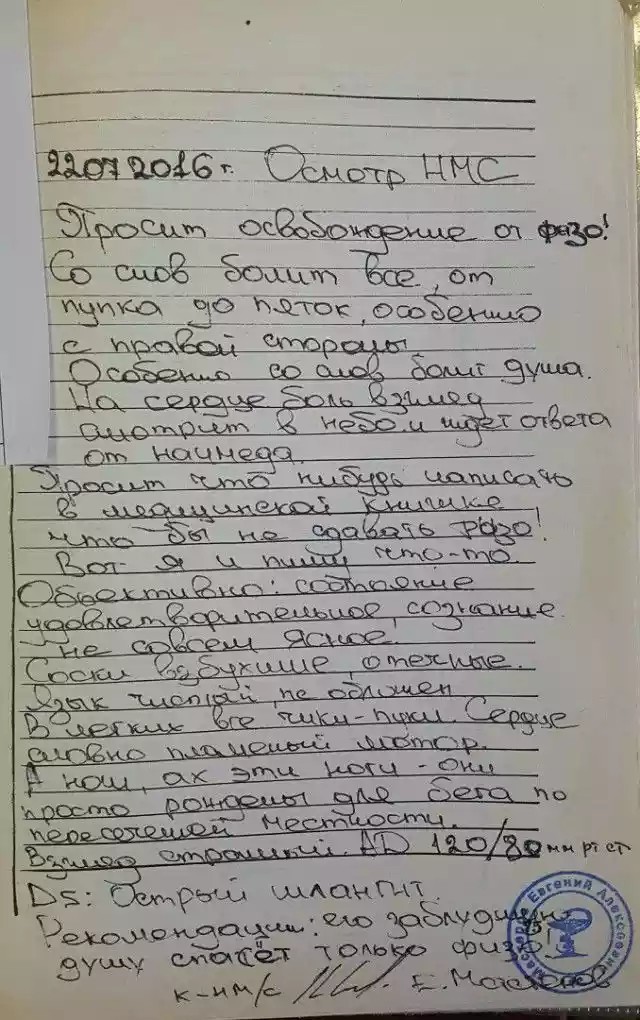 22.07.2016 г. Осмотр НМС
Просит освобождение от физо!
Со слов болит все, от
пупка до пяток, особенно
с правой стороны
Особенно со слов болит душа.
На сердце боль взгляд
смотрит в небо и ждет ответа
от начмеда.
Просит что нибудь написать
в медицинской книжке
что бы не сдавать физо!
Вот я и пишу что-то.
Объективно: состояние
удовлетворительное, сознание
не совсем ясное.
Соски взбухшие, отечные.
Язык чистый, не обложен
В легких все чики-пуки. Сердце
словно пламенный мотор.
А ноги, ах эти ноги - они
просто рождены для бега по
пересеченной местности.
Взгляд странный. AD 120/80 мм рт ст
DS: Острый шлангит.
Рекомендации: его заблудшую
душу спасёт только физо!
к-н м/с Е.
Евгений Алексеевич